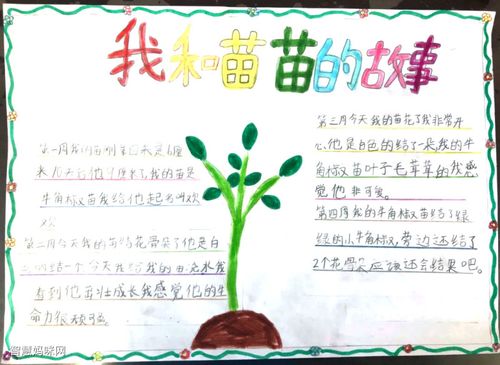 我和苗苗的故事
第一周我的苗刚拿回来是6厘
米10天后他9厘米了,我的苗是
牛角椒苗我给他起名叫欢
欢
第二周今天我的苗结花骨朵了他是白
色的结一个今天我给我的苗浇水我
看到他茁壮成长我感觉他的生
命力很顽强。
第三周今天我的苗花了我非常开
心,他是白色的结了一朵,我的牛
角椒苗叶子毛茸茸的我感
觉他非可爱。
第四周我的牛角椒苗结了绿
绿的小牛角椒,旁边还结了
2个花骨朵应该还会结果吧。
智慧妈咪网